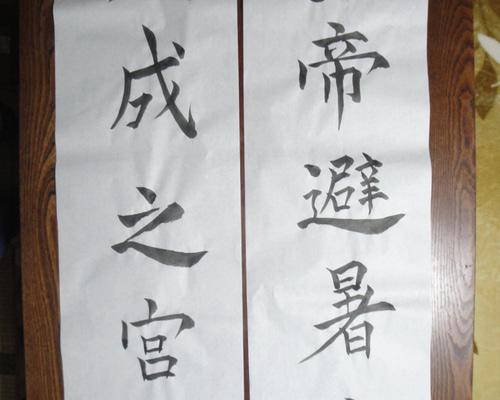 帝避暑
成之宫